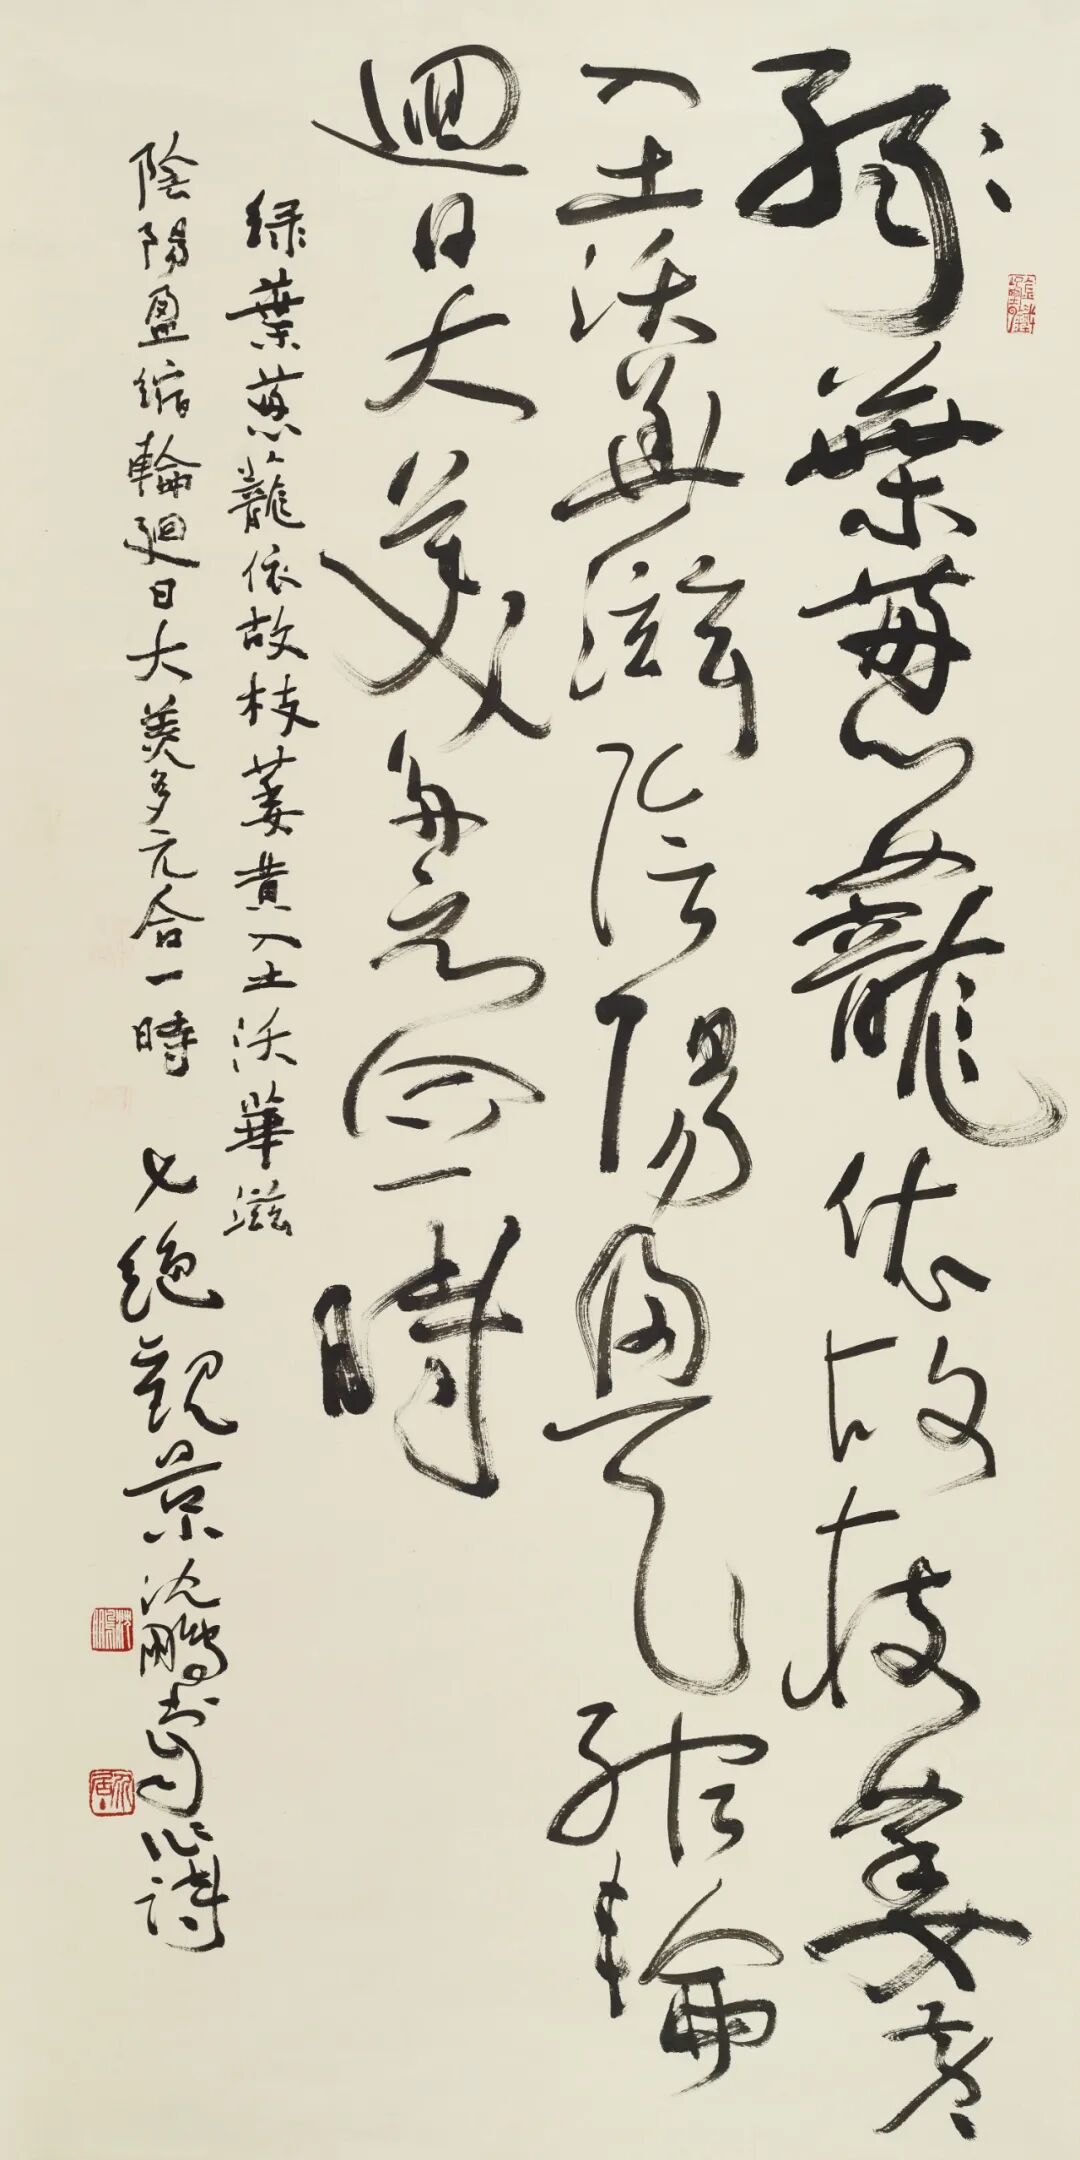 綠葉蔥蘢依故枝萎黃
入土沃華滋陰陽盈縮輪
迴日大美多元合一時
绿葉蔥蘢依故枝萎黄入土沃華滋
陰陽盈缩輪迴日大美多元合一時 七絕觀景沈鵬書自作詩
沈鵬